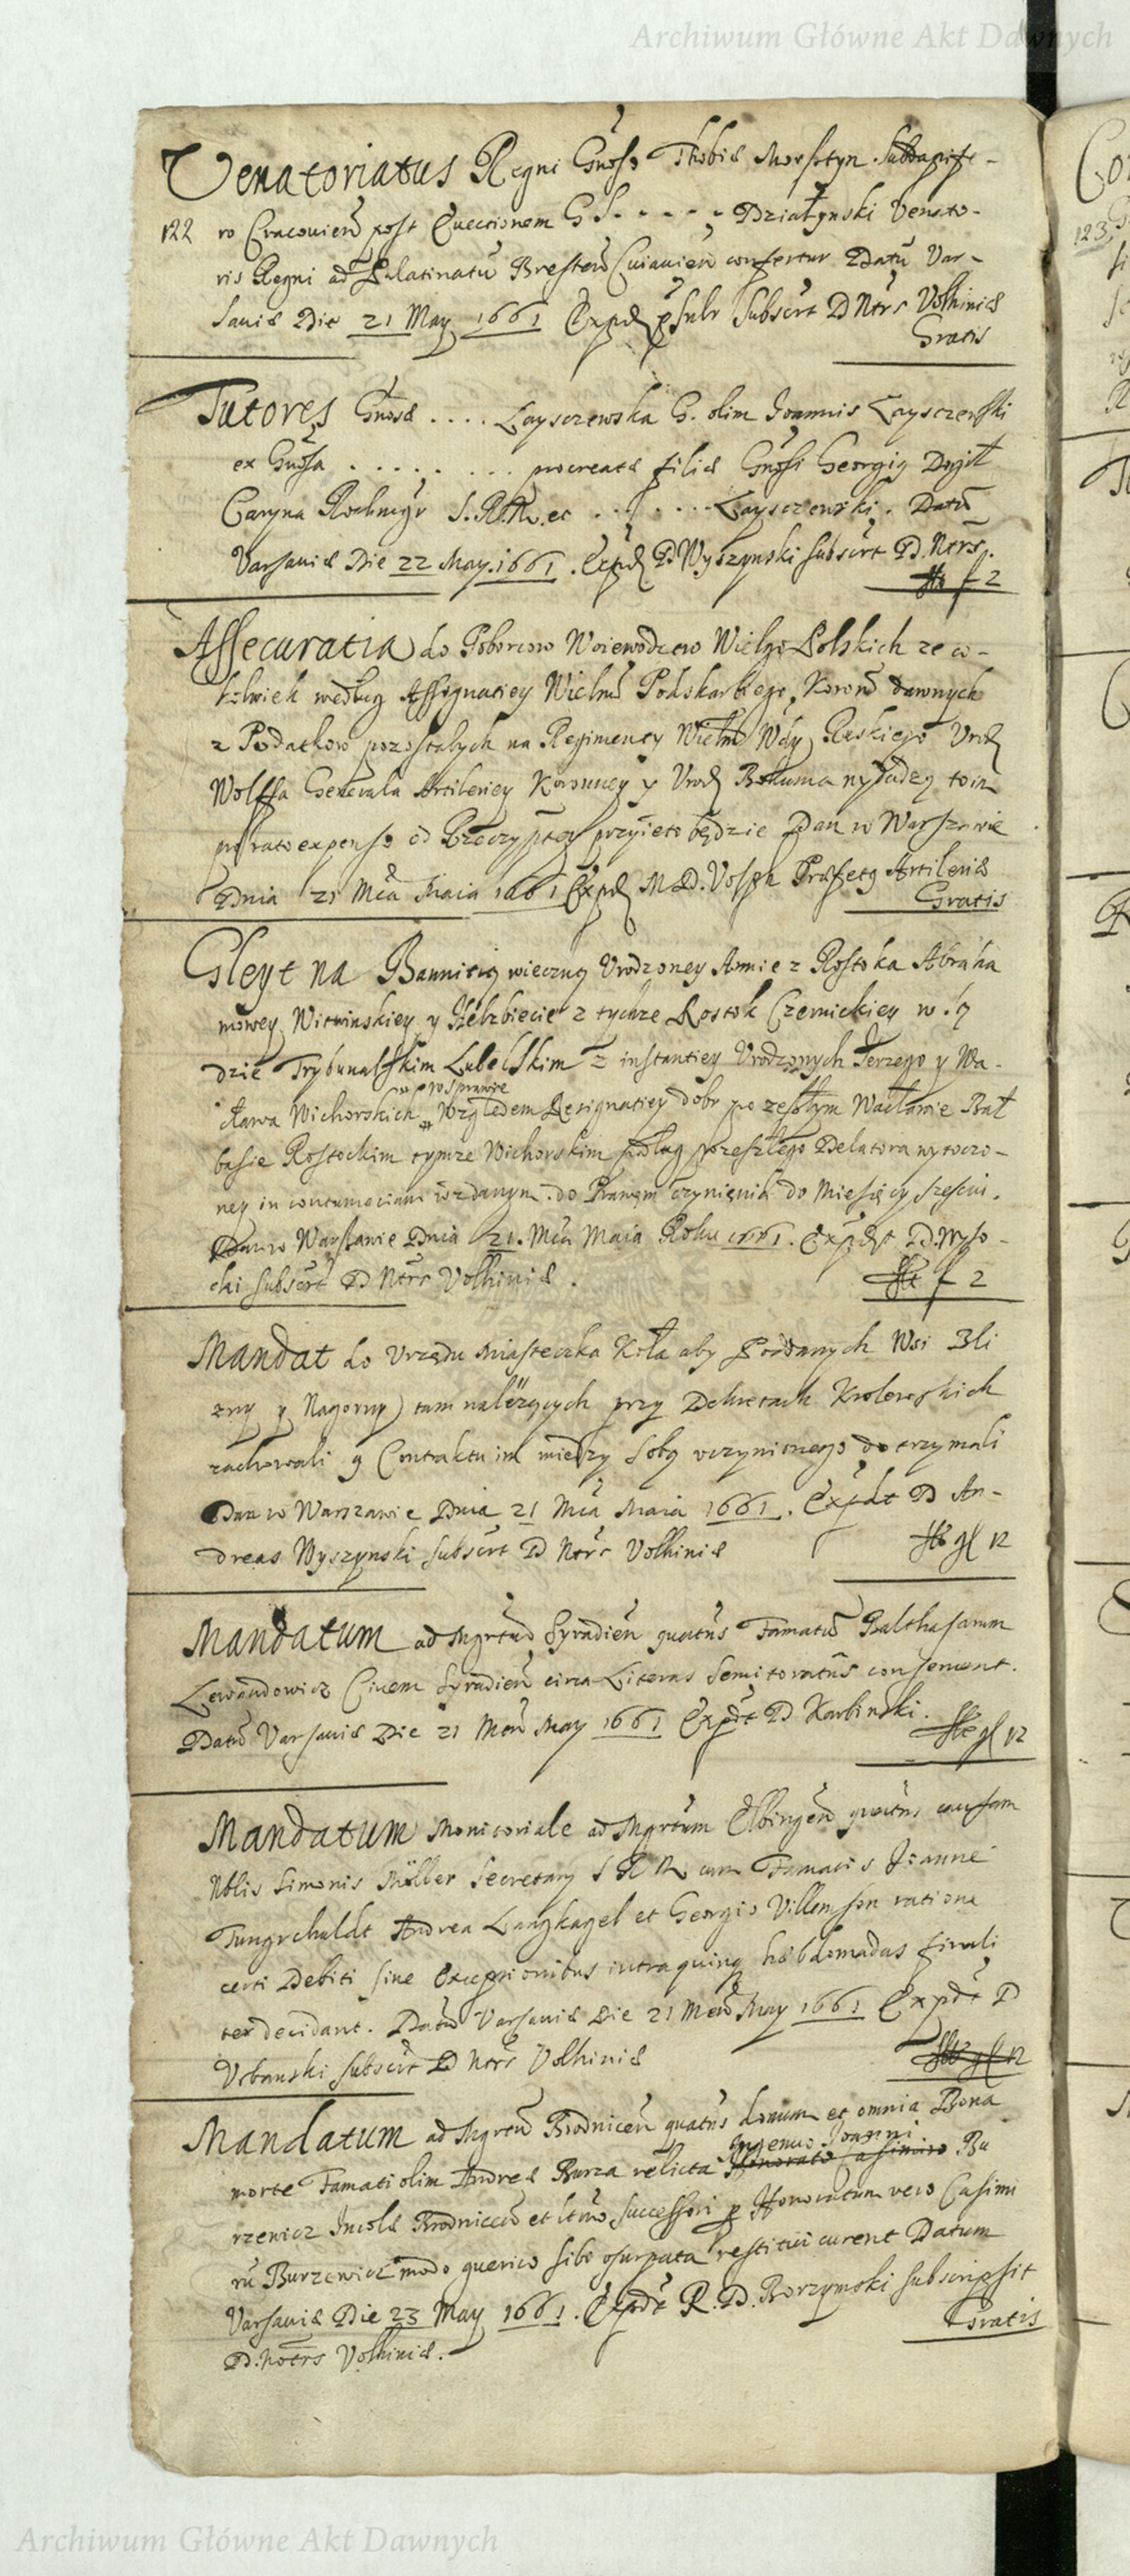 Archiwum Główne Akt Dawnych
Venatoriatus Regni Gnoso Thobiæ Morsztyn Subdapife-
122 ro Cracovien post Evectionem G S. - - - - Działynski Venato-
ris Regni ad Palatinatu Bresten Cuiavien confertur Datu Var-
saviæ Die 21 May 1661 Subscrt D Ntrs Volhiniæ
Gratis
Tutores Gnosæ .... Laysczewska G. olim Joannis Laysczewski
ex Gnosa . . . . . . . . . procreatæ filiæ Gnosi Georgig
S. R. M. ec . . . . . . Laysczewski. Datu
Varsaviæ Die 22 May. 1661. Expd D Wyszynski subscrt D. Ntrs.
f 2
Assecuratia do Poborcow Woiewodztw Wielgo Polskich ze co-
kolwiek według Assignatiey Wielm Podskarbiego Koron dawnych
z Podatkow pozostałych na Regimenty Wielm Wdy Ruskiego Urod
Wolffa Generała Artileriey Koronney y Urod Bokuma wysadzą to im
pro rato expenso od Rzeczyptey przyieto będzie Dan w Warszawie
Dnia 21 Mca Maia 1661 Expd M D. Artileriæ
Gratis
Gleyt na Bannitią wieczną Urodzoney Annie z Rostoka Abraha
mowey Witwinskiey y Helzbiecie z tychze Rostok Czernickiey w Są
dzie Trybunalskim Lubelskim z instantiey Urodzonych Jerzego y Wa-
cława Wichorskich Względem Resignatiey dobr po zeszłym Wacławie Bał
basie Rostockim tymze Wichorskim podług przeszłego Delatora wytoczo-
ney in contumaciam wzdanym. do Prawem czynienia do Miesięcy szesciu.
Dan w Warszawie Dnia 21. Mca Maia Roku 1661. Expdt D. Wyso-
cki subscrt D Ntrs Volhiniæ.
f 2
Mandat do Urzędu Miasteczka Koła aby Poddanych Wsi Bli
zny y Nagorny) tam nalezących przy Dekretach Krolewskich
zachowali y Contraktu im między sobą uczynionego dotrzymali
Dan w Warszawie Dnia 21 Mca Maia 1661. Expdt D An-
dreas Wyszynski subscrt D Ntrs Volhiniæ
gl 12
Mandatum ad Mgrtud Syradien quatus Famatu Balthasarum
Lewandowicz Civem Syradien circa Literas Servitoratus conservent.
Datu Varsaviæ Die 21 Men May 1661 Expdt D Karbinski.
gl 12
Mandatum Monitoriale ad Mgrtum Elbingen quatus causam
Nblis Simonis Möller Secretarÿ S R M cum Famatis Joanne
Tungschuldt Andrea Langkagel et Georgio Villemson ratione
certi Debiti sine exceptionibus intra quinq hebdomadas finali
ter decidant. Datu Varsaviæ Die 21 Men May 1661 Expdt D
Urbanski subscrt D Ntrs Volhiniæ
gl 12
Mandatum ad Mgrtu Brodnicen quatus domum et omnia Bona
Ingenuo Joanni
morte Famati olim Andreæ Burza relicta Honorato Casimiro Bu
rzewicz Incolæ Brodnicen et ltmo Successori p Honoratum vero Casimi
ru Burzewicz modo sibi usurpata restitui curent Datum
Varsaviæ Die 23 May 1661. Expdt R. D. Borzymski subscripsit
D. Notrs Volhiniæ.
Gratis
123
Archiwum Główne Akt Dawnych